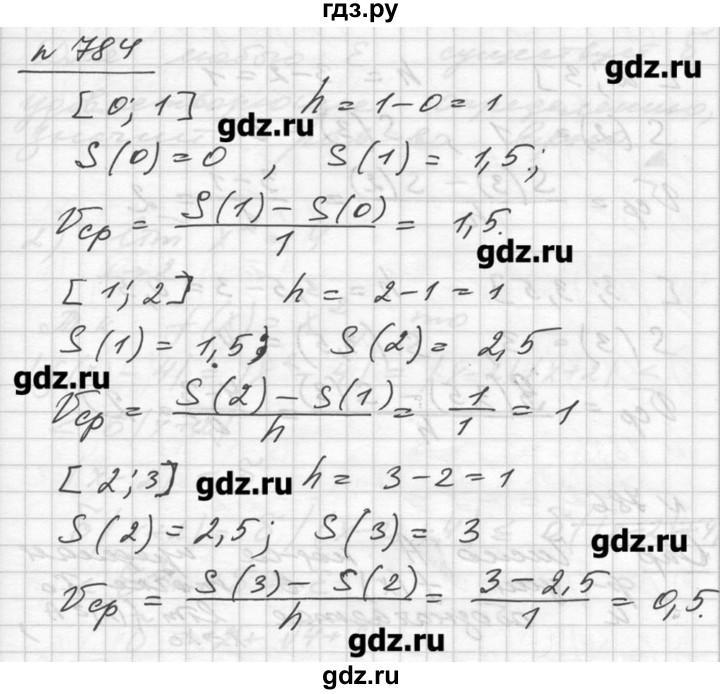 гдз.ру
n 784
gdz.ru
[0; 1] h = 1-0 = 1
gdz.ru
S(0) = 0 , S(1) = 1,5;
Vср = S(1) - S(0) / 1 = 1,5.
gdz.ru
[1; 2] h = 2-1 = 1
S(1) = 1,5; S(2) = 2,5
gdz.ru
Vср = S(2) - S(1) / h = 1/1 = 1
[2; 3] gdz.ru h = 3-2 = 1
S(2) = 2,5; S(3) = 3
gdz.ru
Vср = S(3) - S(2) / h = 3-2,5 / 1 = 0,5.
gdz.ru
gdz.ru